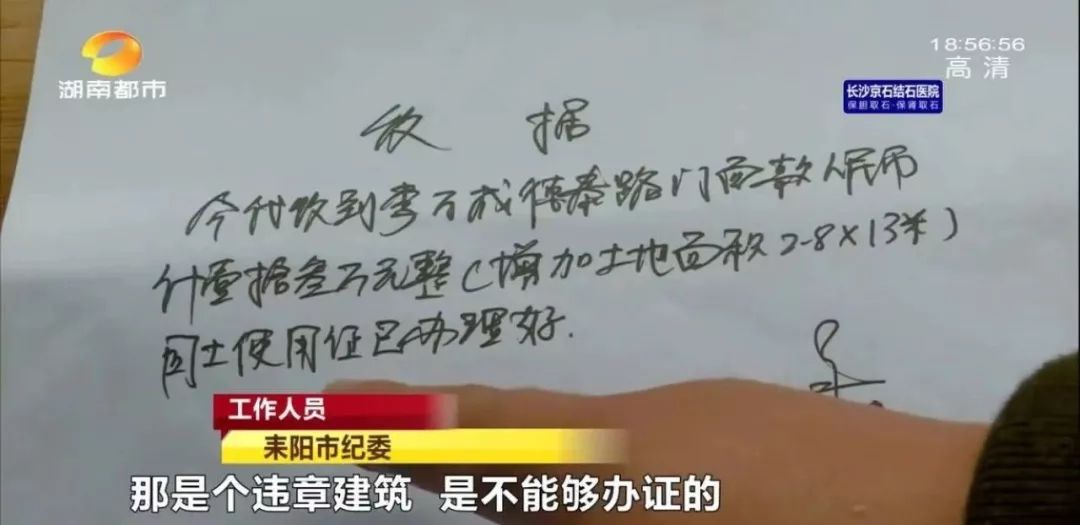 湖南都市
18:56:56
高清
长沙京石结石医院
保胆取石·保肾取石
收 据
今代收到李万成德泰路门面款人民币
计壹拾叁万元整(增加土地面积2.8×13米)
国土使用证已办理好.
工作人员
耒阳市纪委
那是个违章建筑 是不能够办证的